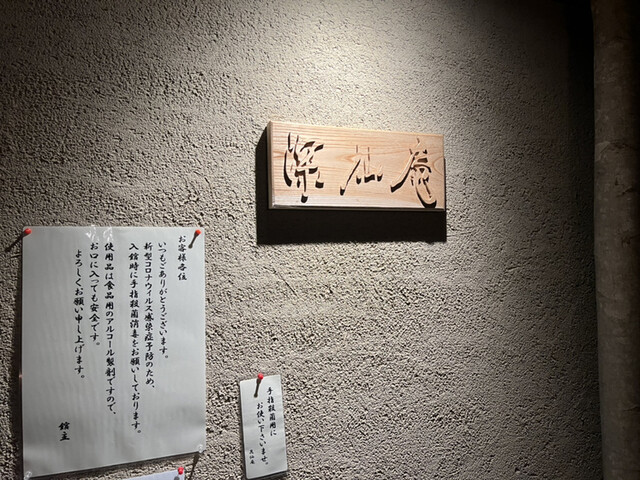 仙庵
お客様各位
いつもごありがとうございます。
新型コロナウィルス感染症予防のため、
入館時に手指殺菌消毒をお願いしております。
使用品は食品用のアルコール製剤ですので、
お口に入っても安全です。
よろしくお願い申し上げます。
館主
手指殺菌用に
お使い下さいませ。